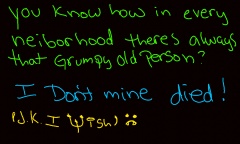 you know how in every
neiborhood theres always
that Grumpy old person?
I Don't mine died!
!J.K. I wish) :(